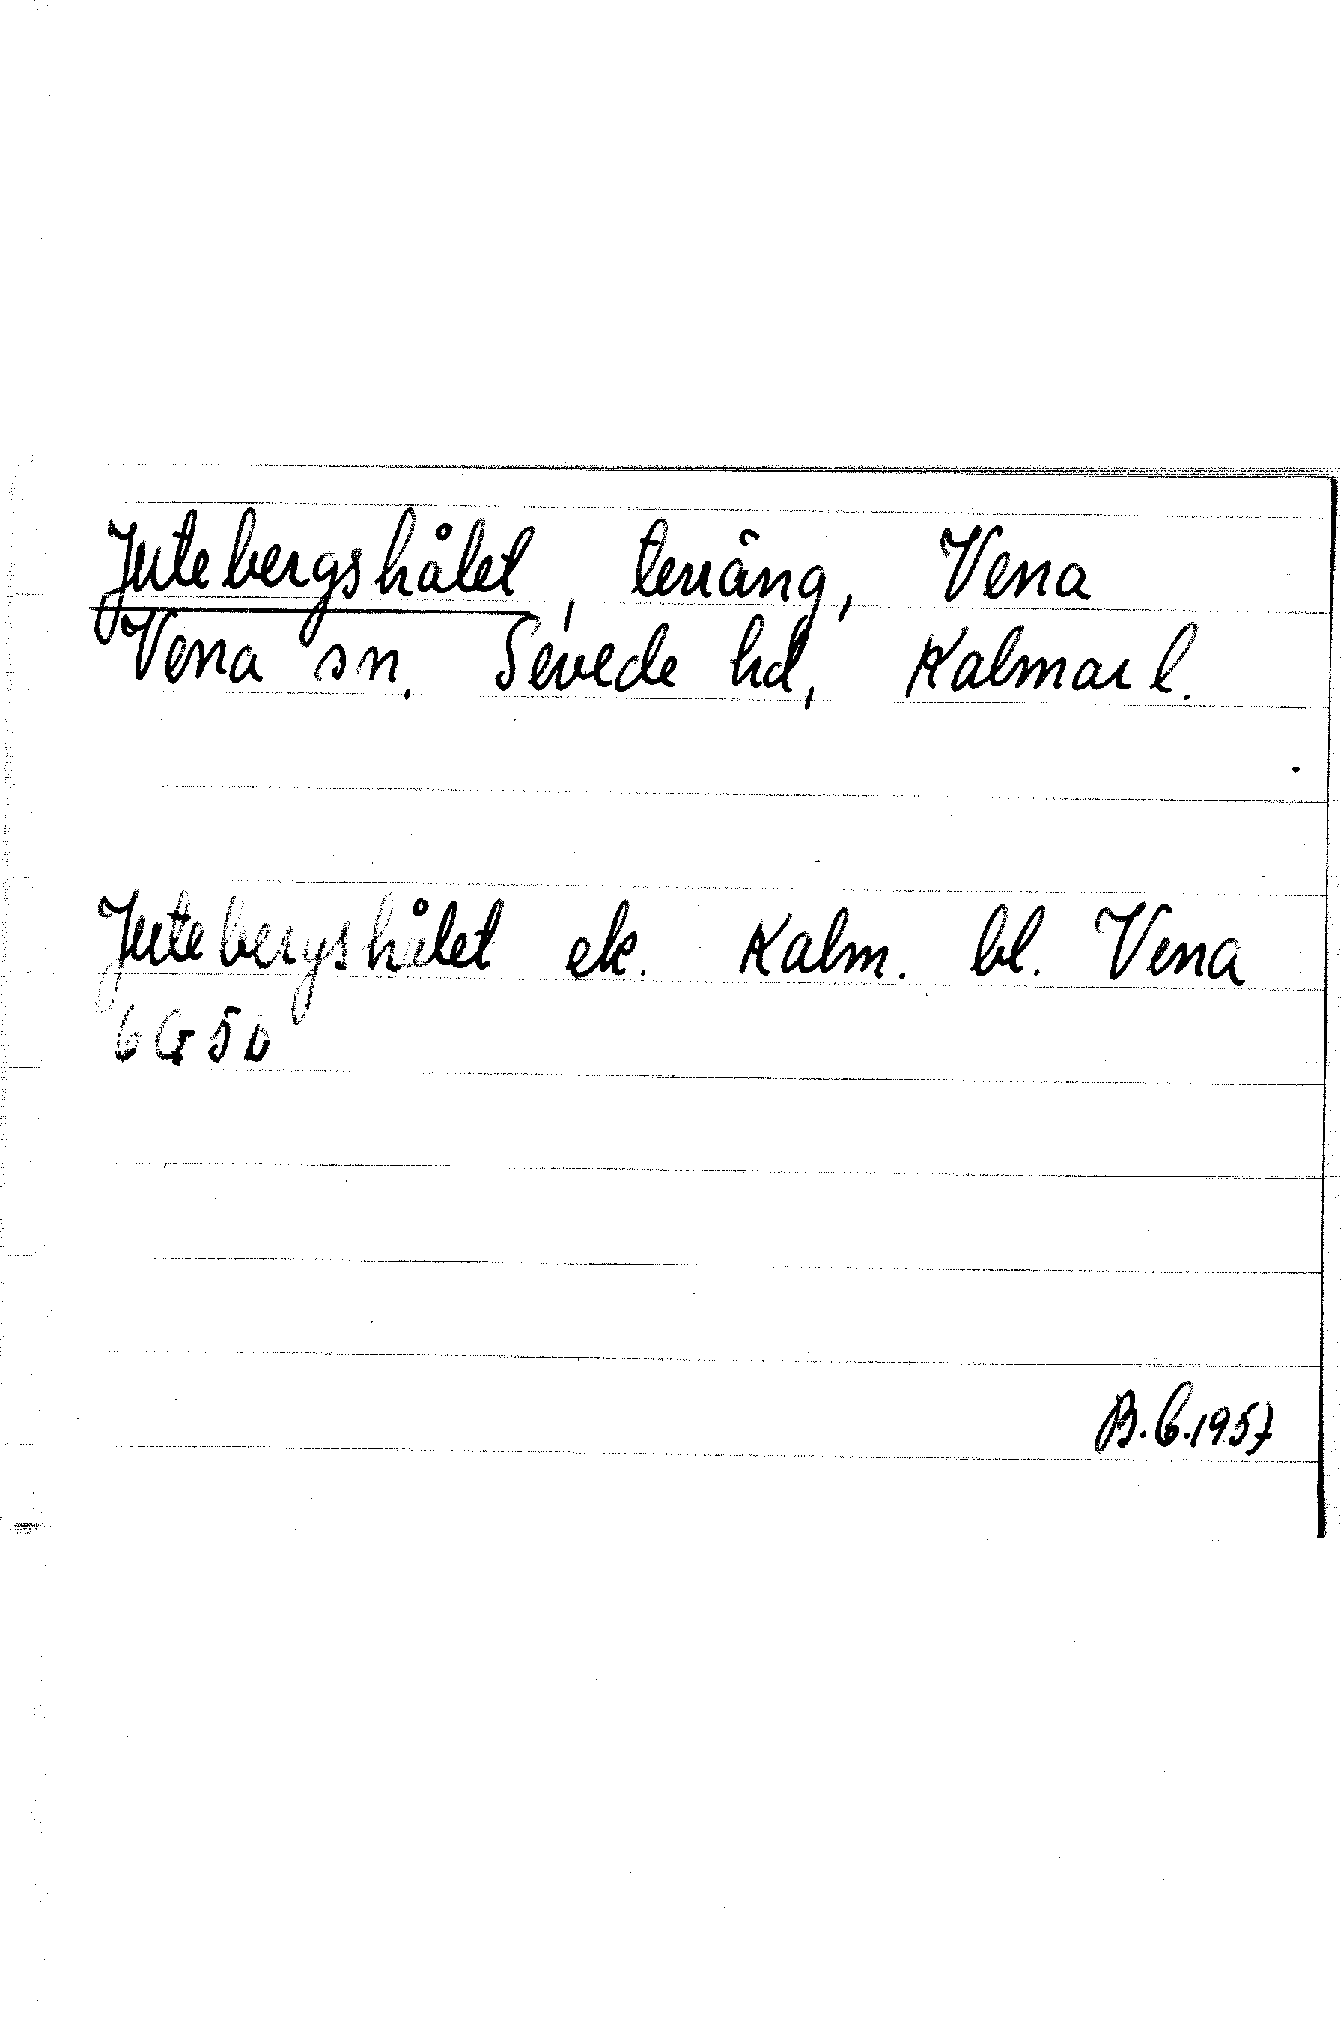 Jutebergshålet, terräng, Vena
Vena sn. Sevede hd, Kalmar l.
Jutebergshålet ek. Kalm. bl. Vena
6G5D
B.C.1957